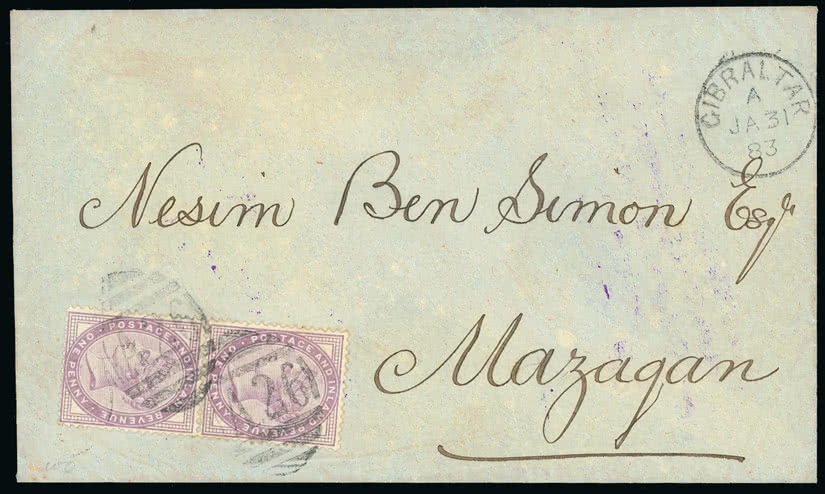 GIBRALTAR
A
JA 31
83
Nesim Ben Simon Esqr
Mazagan
POSTAGE AND INLAND REVENUE · ONE PENNY
POSTAGE AND INLAND REVENUE · ONE PENNY
A26